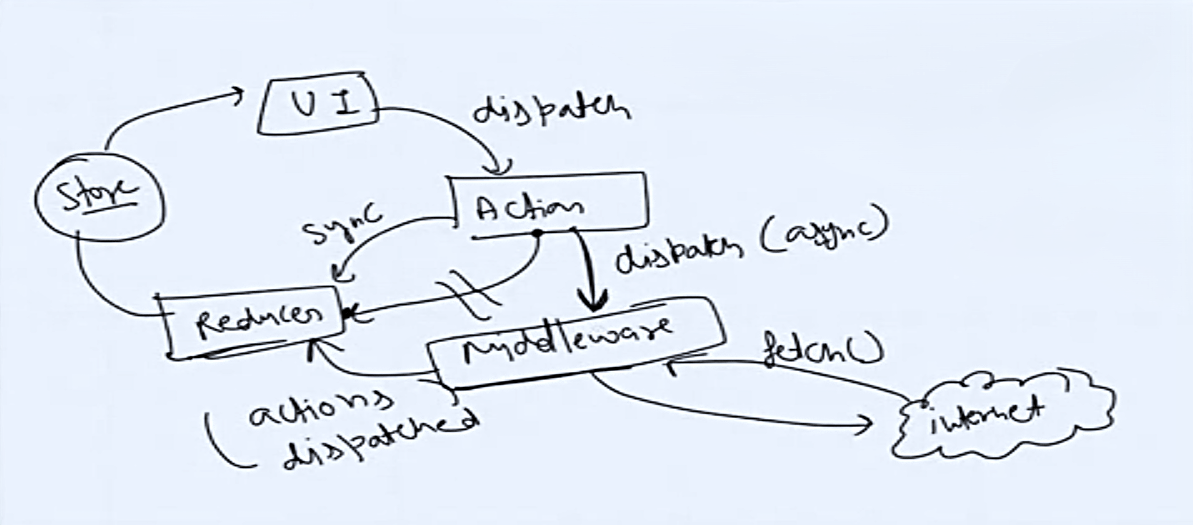 UI
dispatch
Store
Action
sync
dispatch (async)
Reducer
Middleware
fetch()
internet
(actions
dispatched